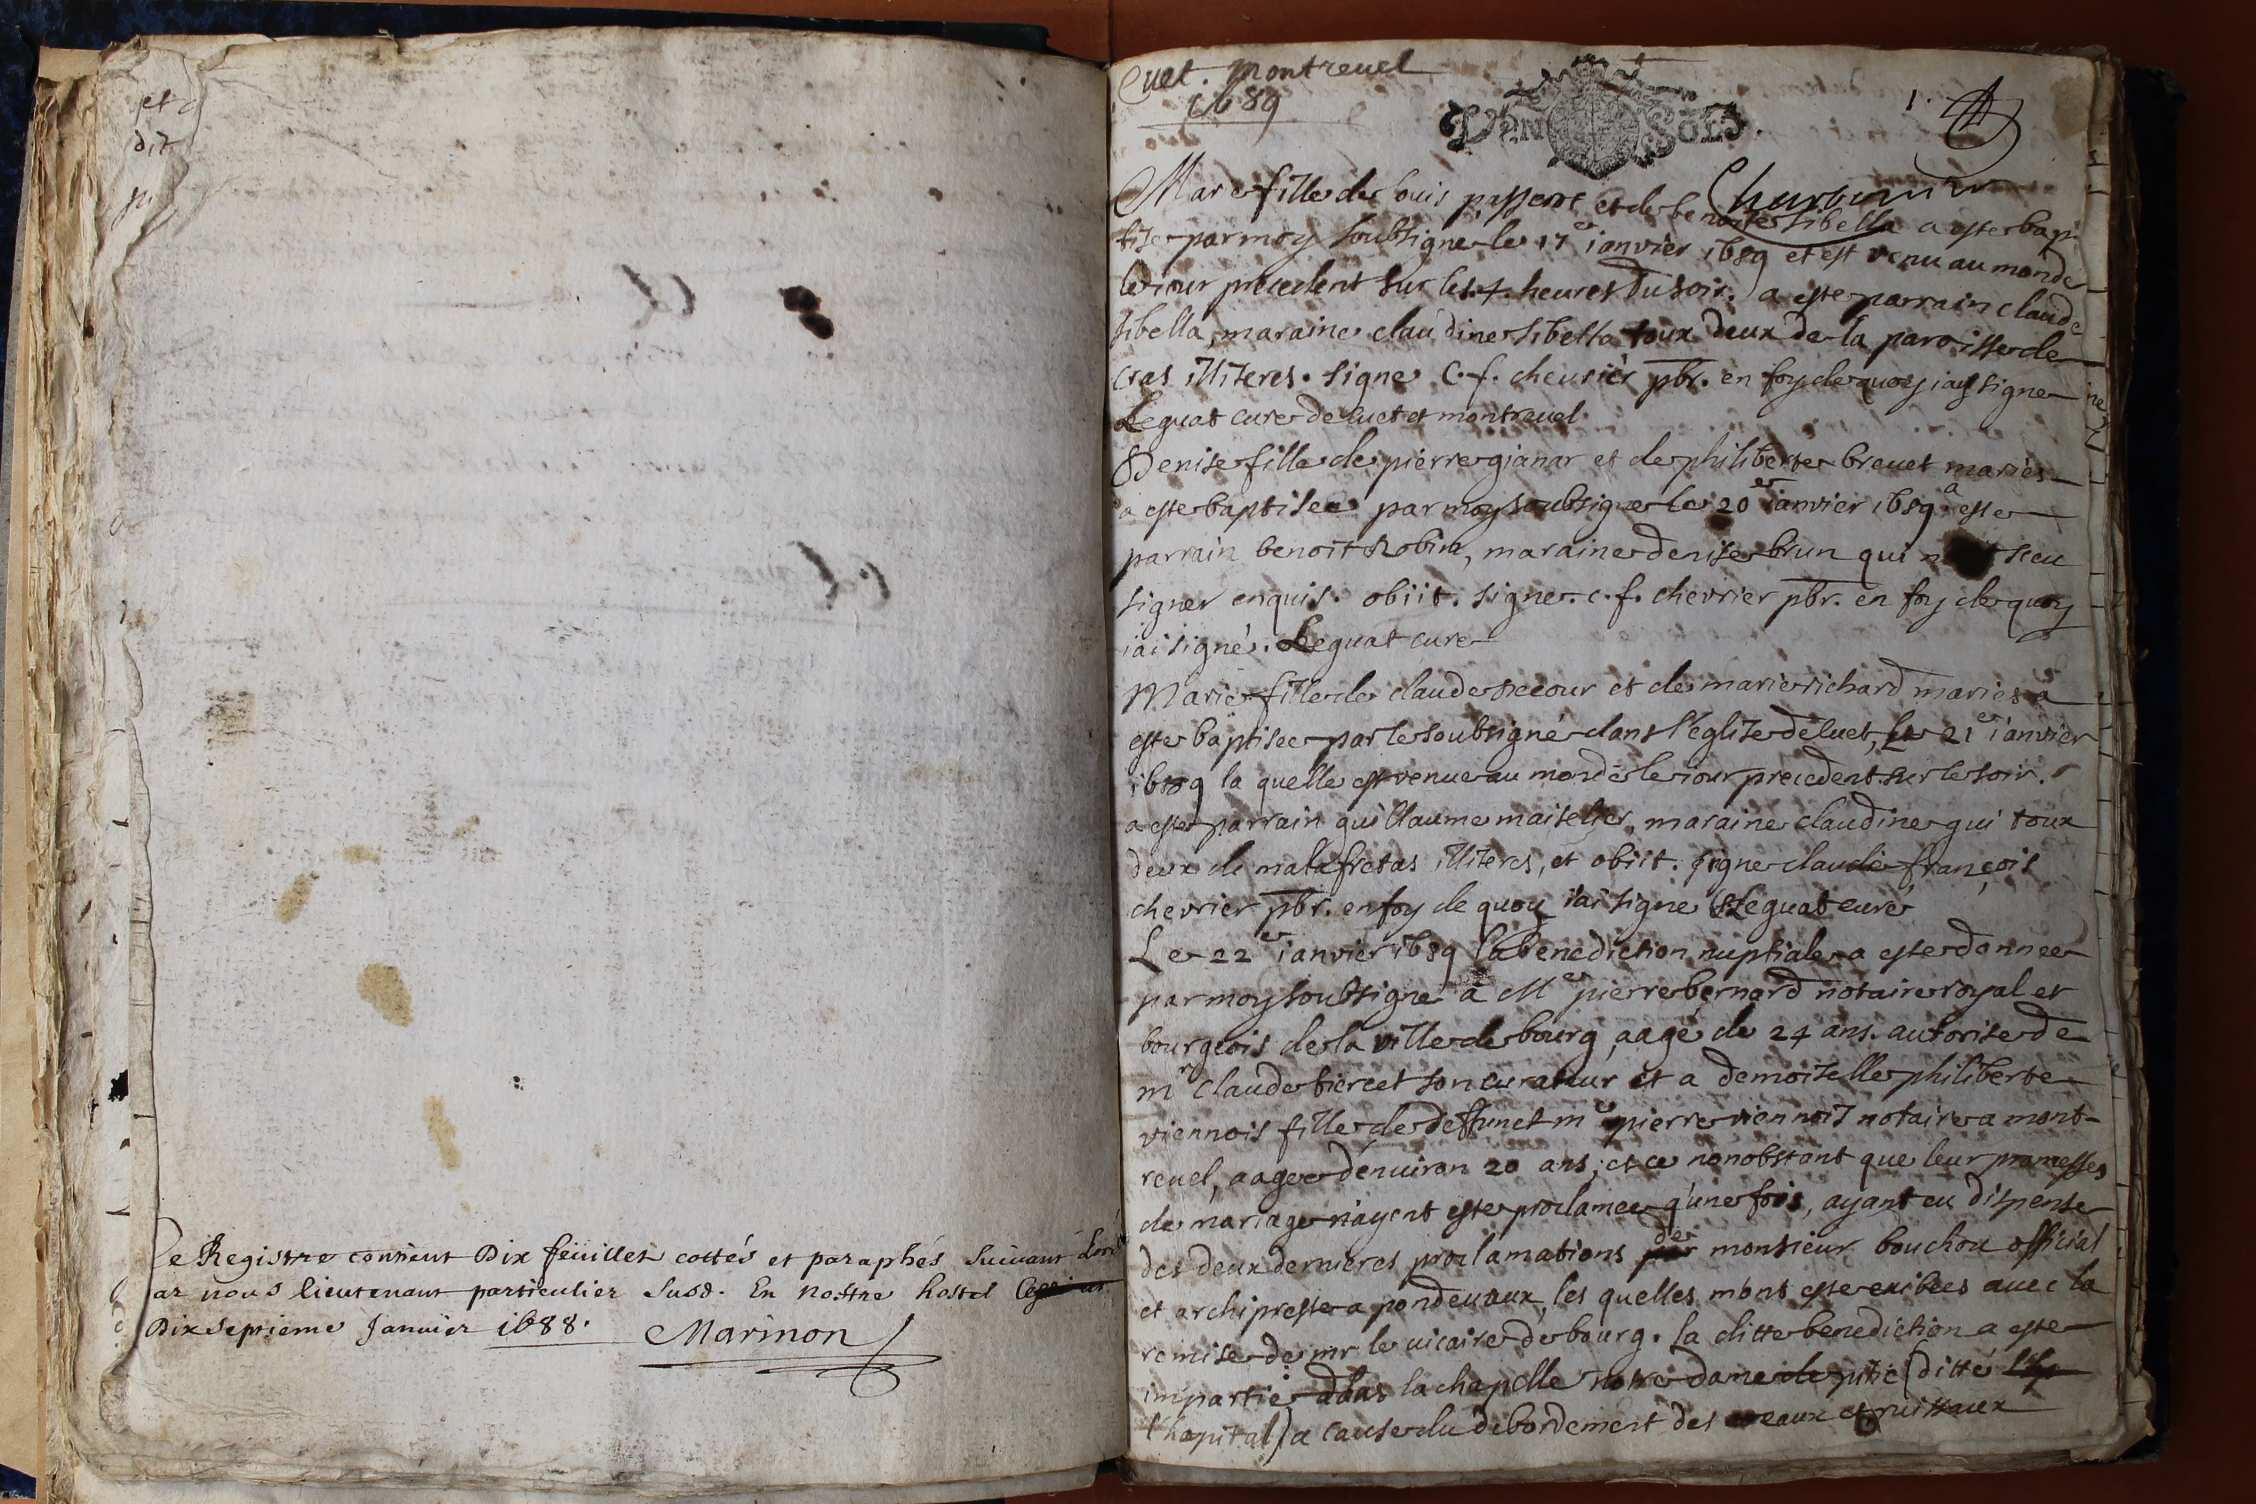 et
dit
Ce Registre contient Dix feüillet cottés et paraphés suivant
ar nous lieutenant particulier susd. En nostre hostel
Dix septieme Janvier 1688.
Marinon
Cuet. Montreuel
1689
VIN SOLS.
1.
Marie fille de louis passerat et de benoite sibella a este bap-
tise par moy soubsigne le 17er ianvier 1689 et est venu au monde
le iour precedent sur les 4. heures du soir. a este parrain claude
sibella, maraine claudine sibella toux deux de la paroisse de
cras illiteres. signe C. f. cheurier pbr. en foy de quoy iay signe
Leguat cure de cuet et montreuel
Denise fille de pierre gianar et de philiberte breuet maries
a este baptisee par moy soubsigne le 20er ianvier 1689 a este
parrain benoit Robin, maraine denise brun qui sceu
signer enquis. obiit. signe. c. f. chevrier pbr. en foy de quoy
iai signé. Leguat cure
Marie fille de claude secour et de marie richard maries a
este baptisee par le soubsigné dans l'eglise de cuet, le 21er ianvier
1689 la quelle est venue au monde le iour precedent sur le soir.
a este parrain guillaume maiselier, maraine claudine gui toux
deux de malafretas illiteres, et obiit. signe claude françois
chevrier pbr. en foy de quoy iai signe Leguat curé
Le 22er ianvier 1689 la benediction nuptiale a este donnee
par moy soubsigne à Me pierre bernard notaire royal et
bourgeois de la ville de bourg, aagé de 24 ans. autorise de
mr claude biercet son curateur et a demoiselle philiberte
viennois fille de deffunct me pierre viennois notaire a mont-
reuel, aagee d'enuiron 20 ans; et ce nonobstant que leur promesses
de mariage n'ayent este proclamee q'une fois, ayant eu dispense
des deux dernieres proclamations de monsieur bouchou official
et archiprestre a pondeuaux, les quelles m'ont este exibees auec la
remise de mr le vicaire de bourg. la ditte benediction a este
impartie dans la chapelle nostre dame de pitie (ditte
l'hopital) a cause du debordement des eaux et ruisseaux